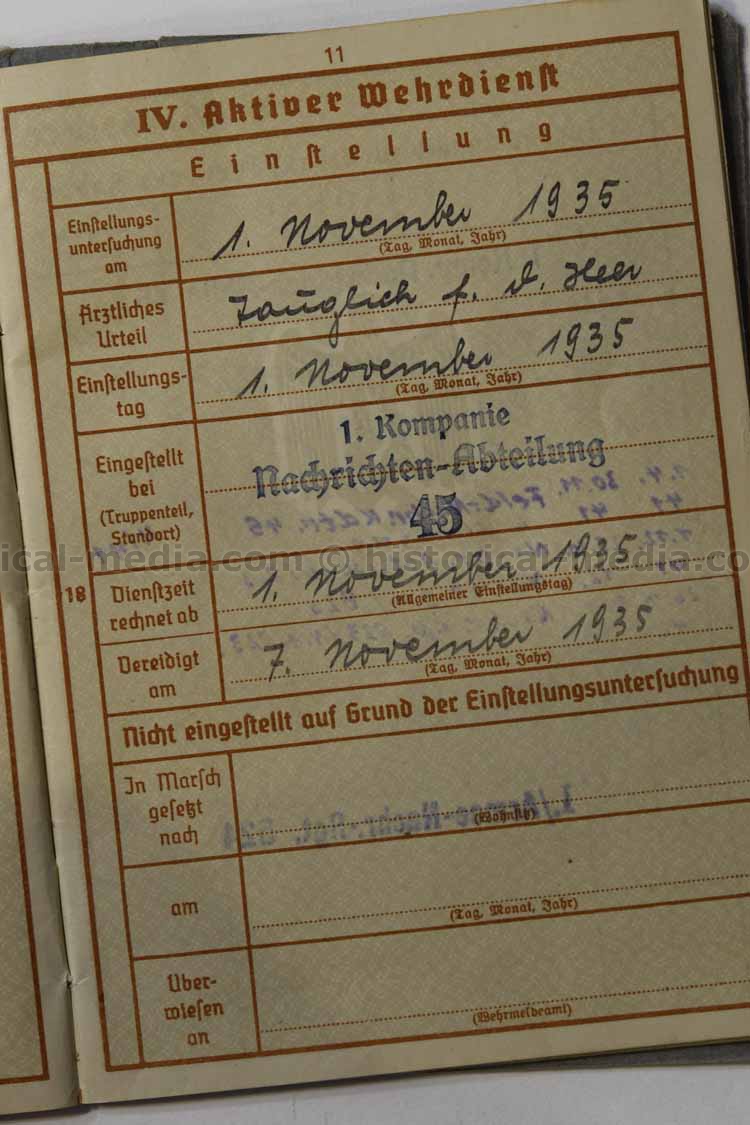 11
IV. Aktiver Wehrdienst
Einstellung
Einstellungs-
untersuchung
am
1. November 1935
(Tag, Monat, Jahr)
Ärztliches
Urteil
Tauglich f. d. Heer
Einstellungs-
tag
1. November 1935
(Tag, Monat, Jahr)
Eingestellt
bei
(Truppenteil,
Standort)
1. Kompanie
Nachrichten-Abteilung
45
ical-media.com © historical-media.co
18
Dienstzeit
rechnet ab
1. November 1935
(Allgemeiner Einstellungstag)
Vereidigt
am
7. November 1935
(Tag, Monat, Jahr)
Nicht eingestellt auf Grund der Einstellungsuntersuchung
In Marsch
gesetzt
nach
(Wohnsitz)
am
(Tag, Monat, Jahr)
Über-
wiesen
an
(Wehrmeldeamt)